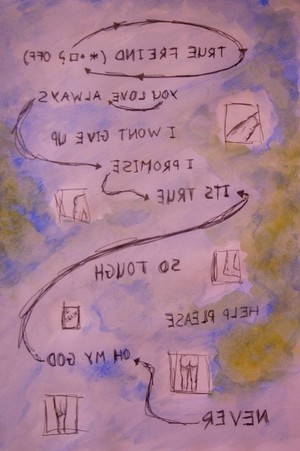 TRUE FREIND (*•□? OFF)
YOU LOVE ALWAYS
I WONT GIVE UP
I PROMISE
ITS TRUE
SO TOUGH
HELP PLEASE
OH MY GOD
NEVER